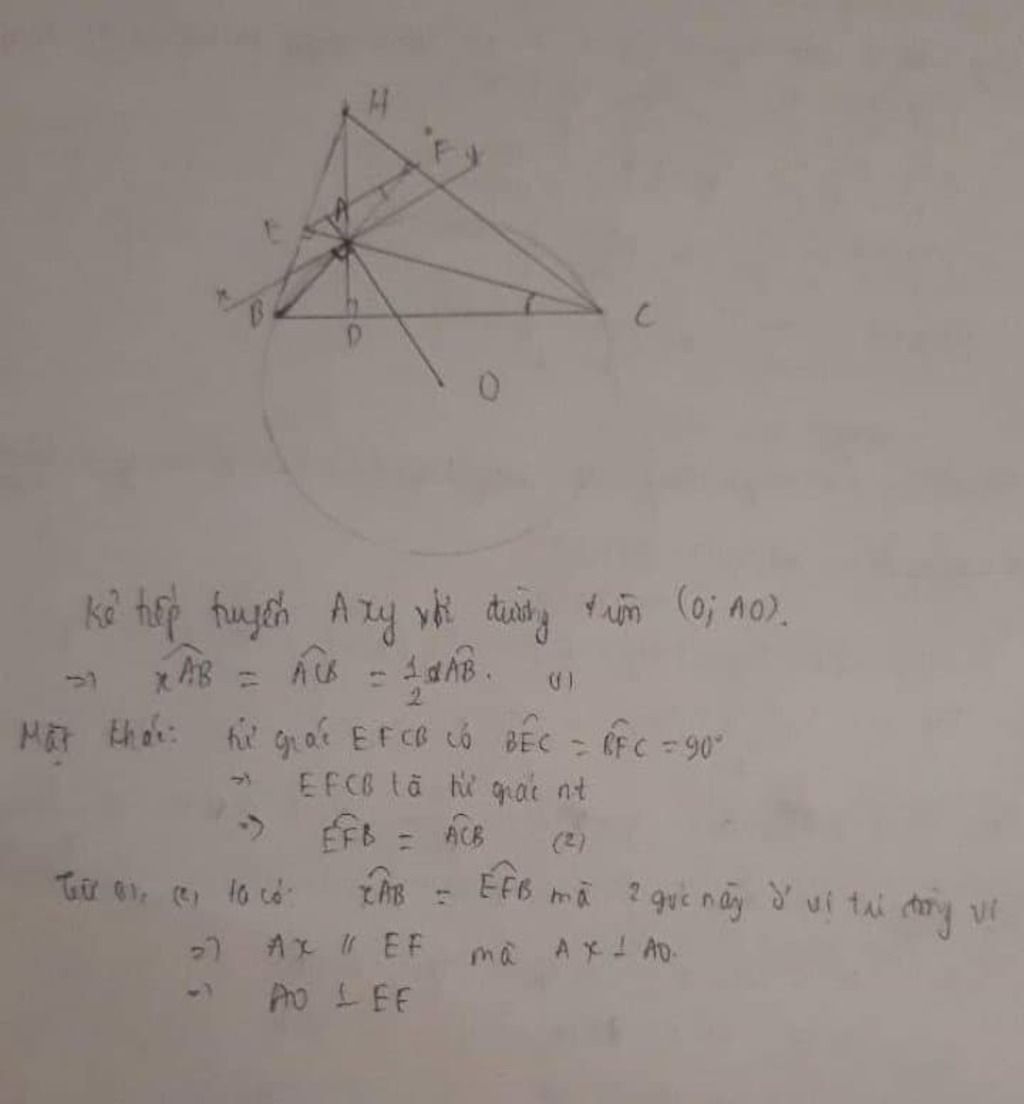 H
F y
A
E
x
B
D
C
O
Kẻ tiếp tuyến Axy với đường tròn (O; AO).
=> xAB = ACB = 1/2 sđAB. (1)
Mặt khác: tứ giác EFCB có BEC = BFC = 90°
=> EFCB là tứ giác nt
=> EFB = ACB (2)
Từ (1), (2) ta có: xAB = EFB mà 2 góc này ở vị trí đồng vị
=> Ax // EF mà Ax ⊥ AO.
=> AO ⊥ EF